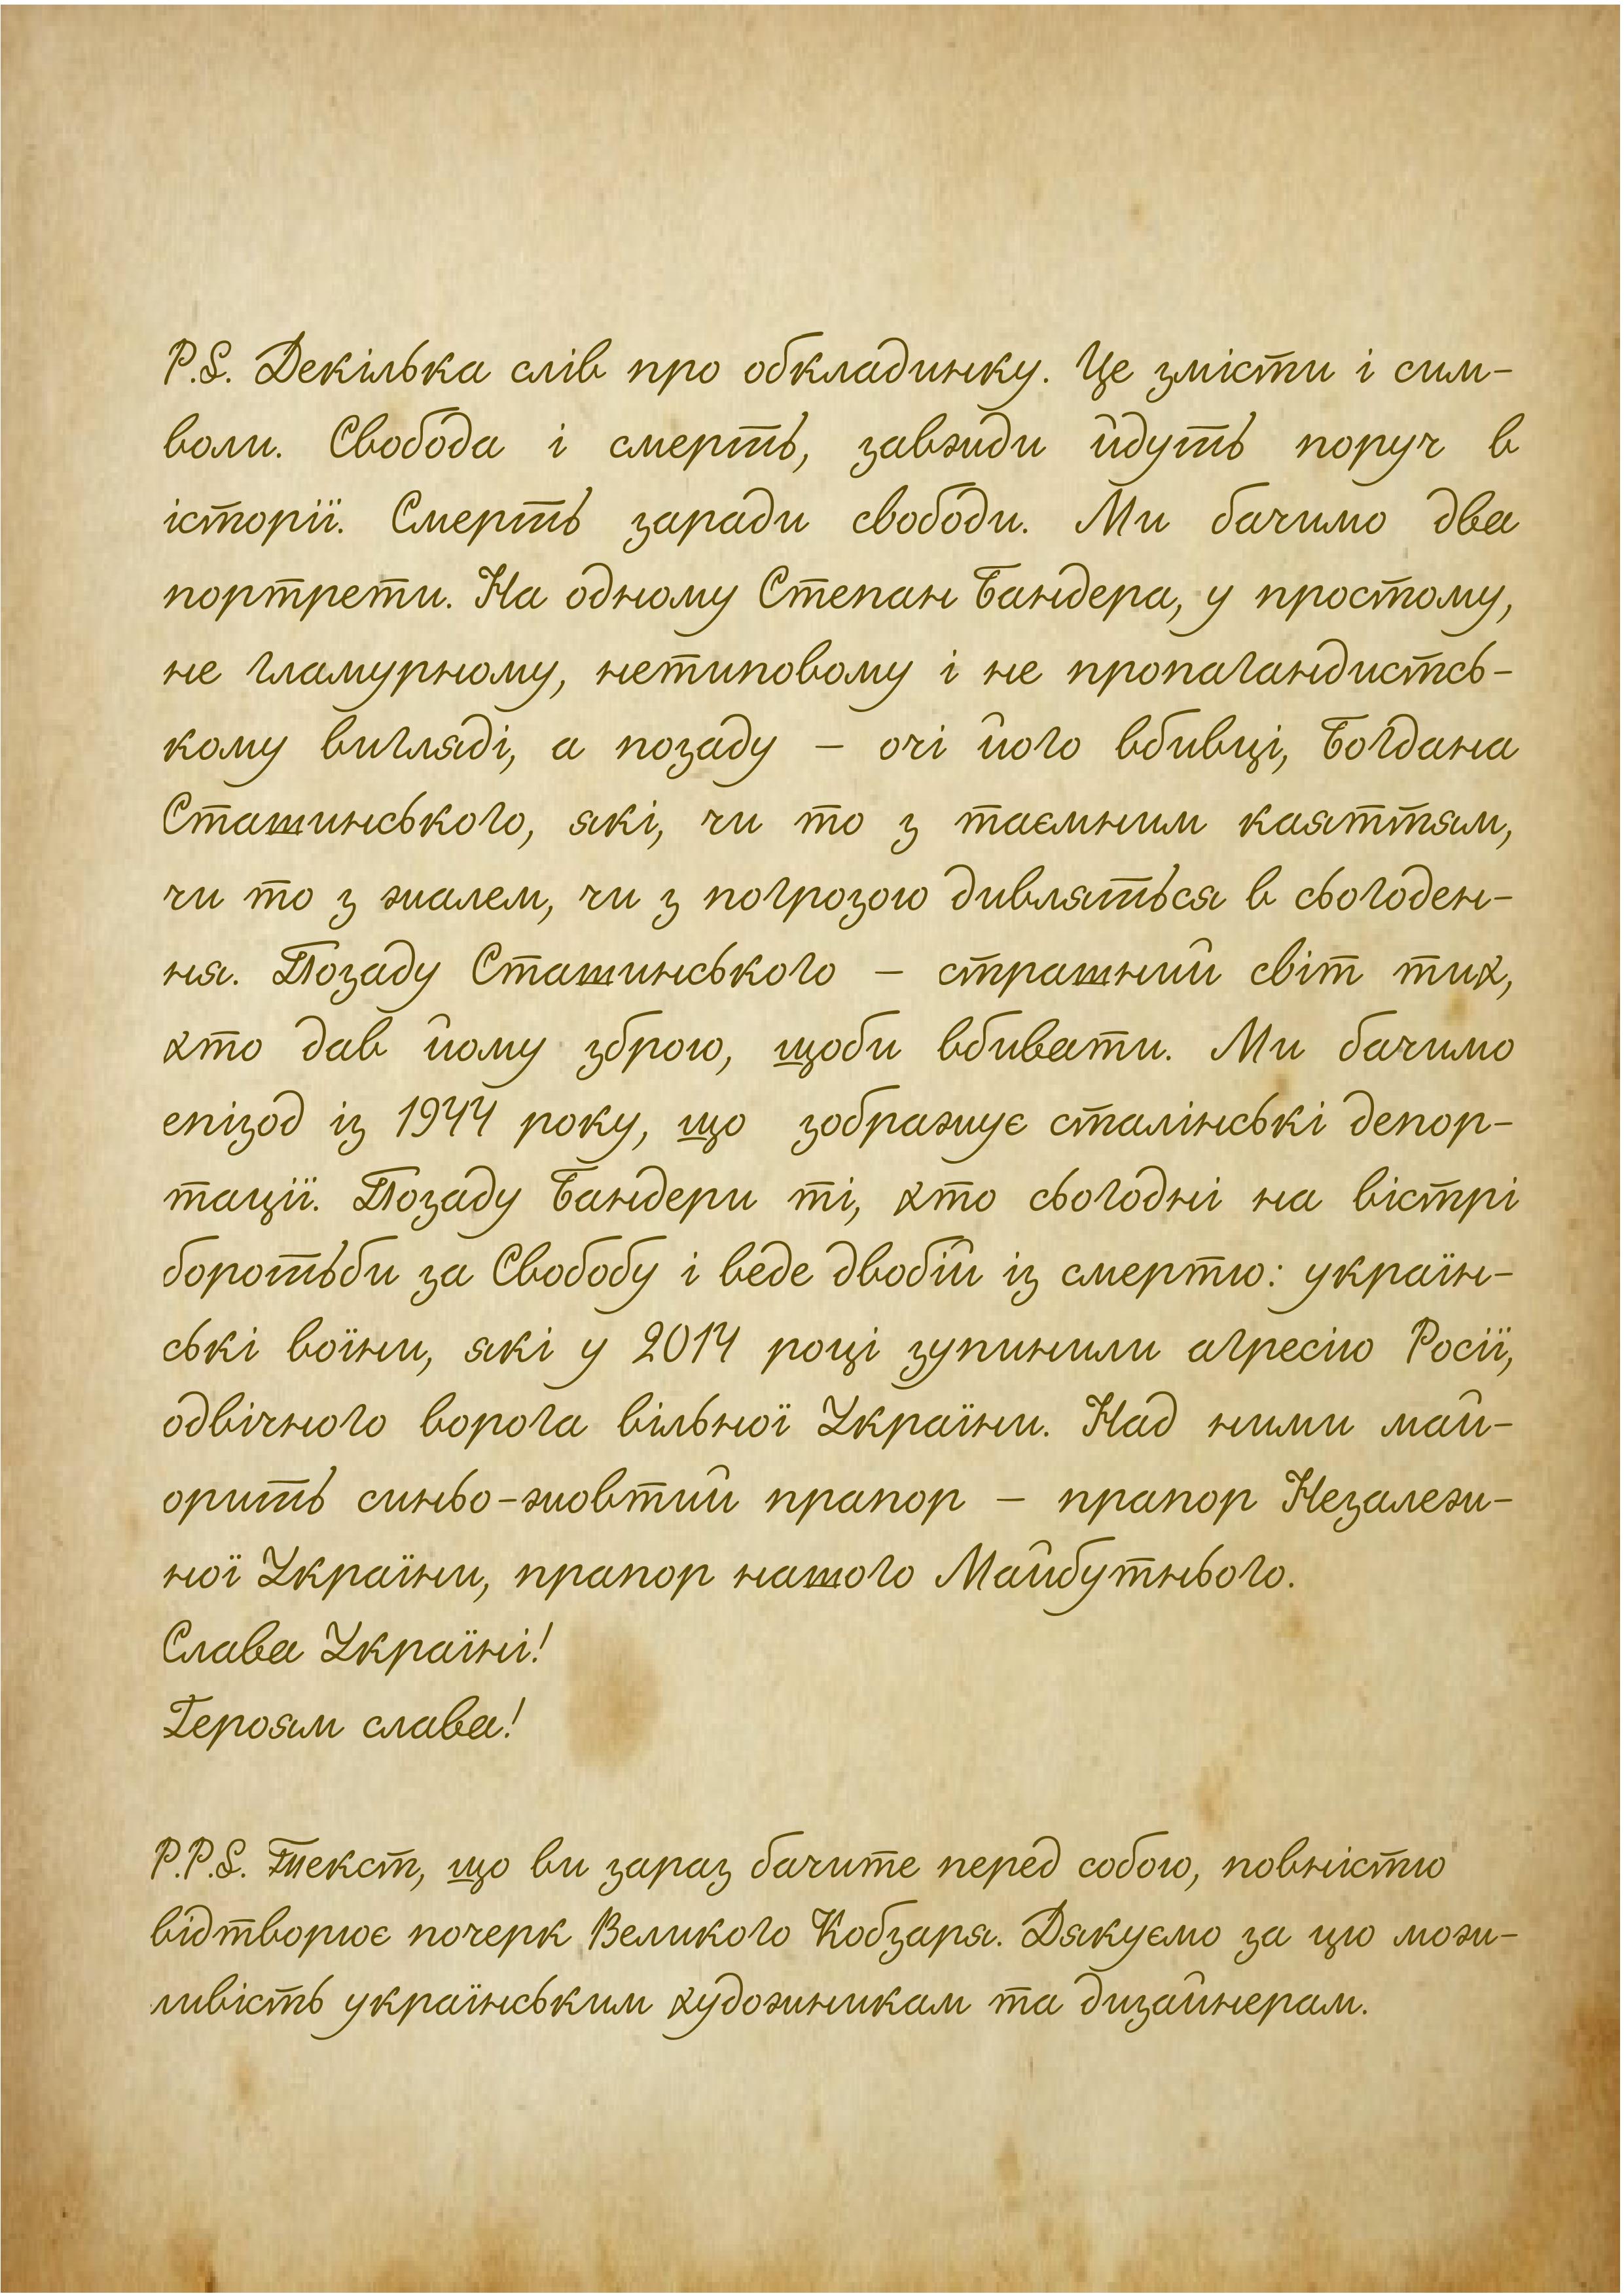 P.S. Декілька слів про обкладинку. Це змісти і сим-
воли. Свобода і смерть, завжди йдуть поруч в
історії. Смерть заради свободи. Ми бачимо два
портрети. На одному Степан Бандера, у простому,
не гламурному, нетиповому і не пропагандистсь-
кому вигляді, а позаду – очі його вбивці, Богдана
Сташинського, які, чи то з таємним каяттям,
чи то з жалем, чи з погрозою дивляться в сьогоден-
ня. Позаду Сташинського – страшний світ тих,
хто дав йому зброю, щоби вбивати. Ми бачимо
епізод із 1944 року, що зображує сталінські депор-
тації. Позаду Бандери ті, хто сьогодні на вістрі
боротьби за Свобобу і веде двобій із смертю: україн-
ські воїни, які у 2014 році зупинили агресію Росії,
одвічного ворога вільної України. Над ними май-
орить синьо-жовтий прапор – прапор Незалеж-
ної України, прапор нашого Майбутнього.
Слава Україні!
Героям слава!
P.P.S. Текст, що ви зараз бачите перед собою, повністю
відтворює почерк Великого Кобзаря. Дякуємо за цю мож-
ливість українським художникам та дизайнерам.